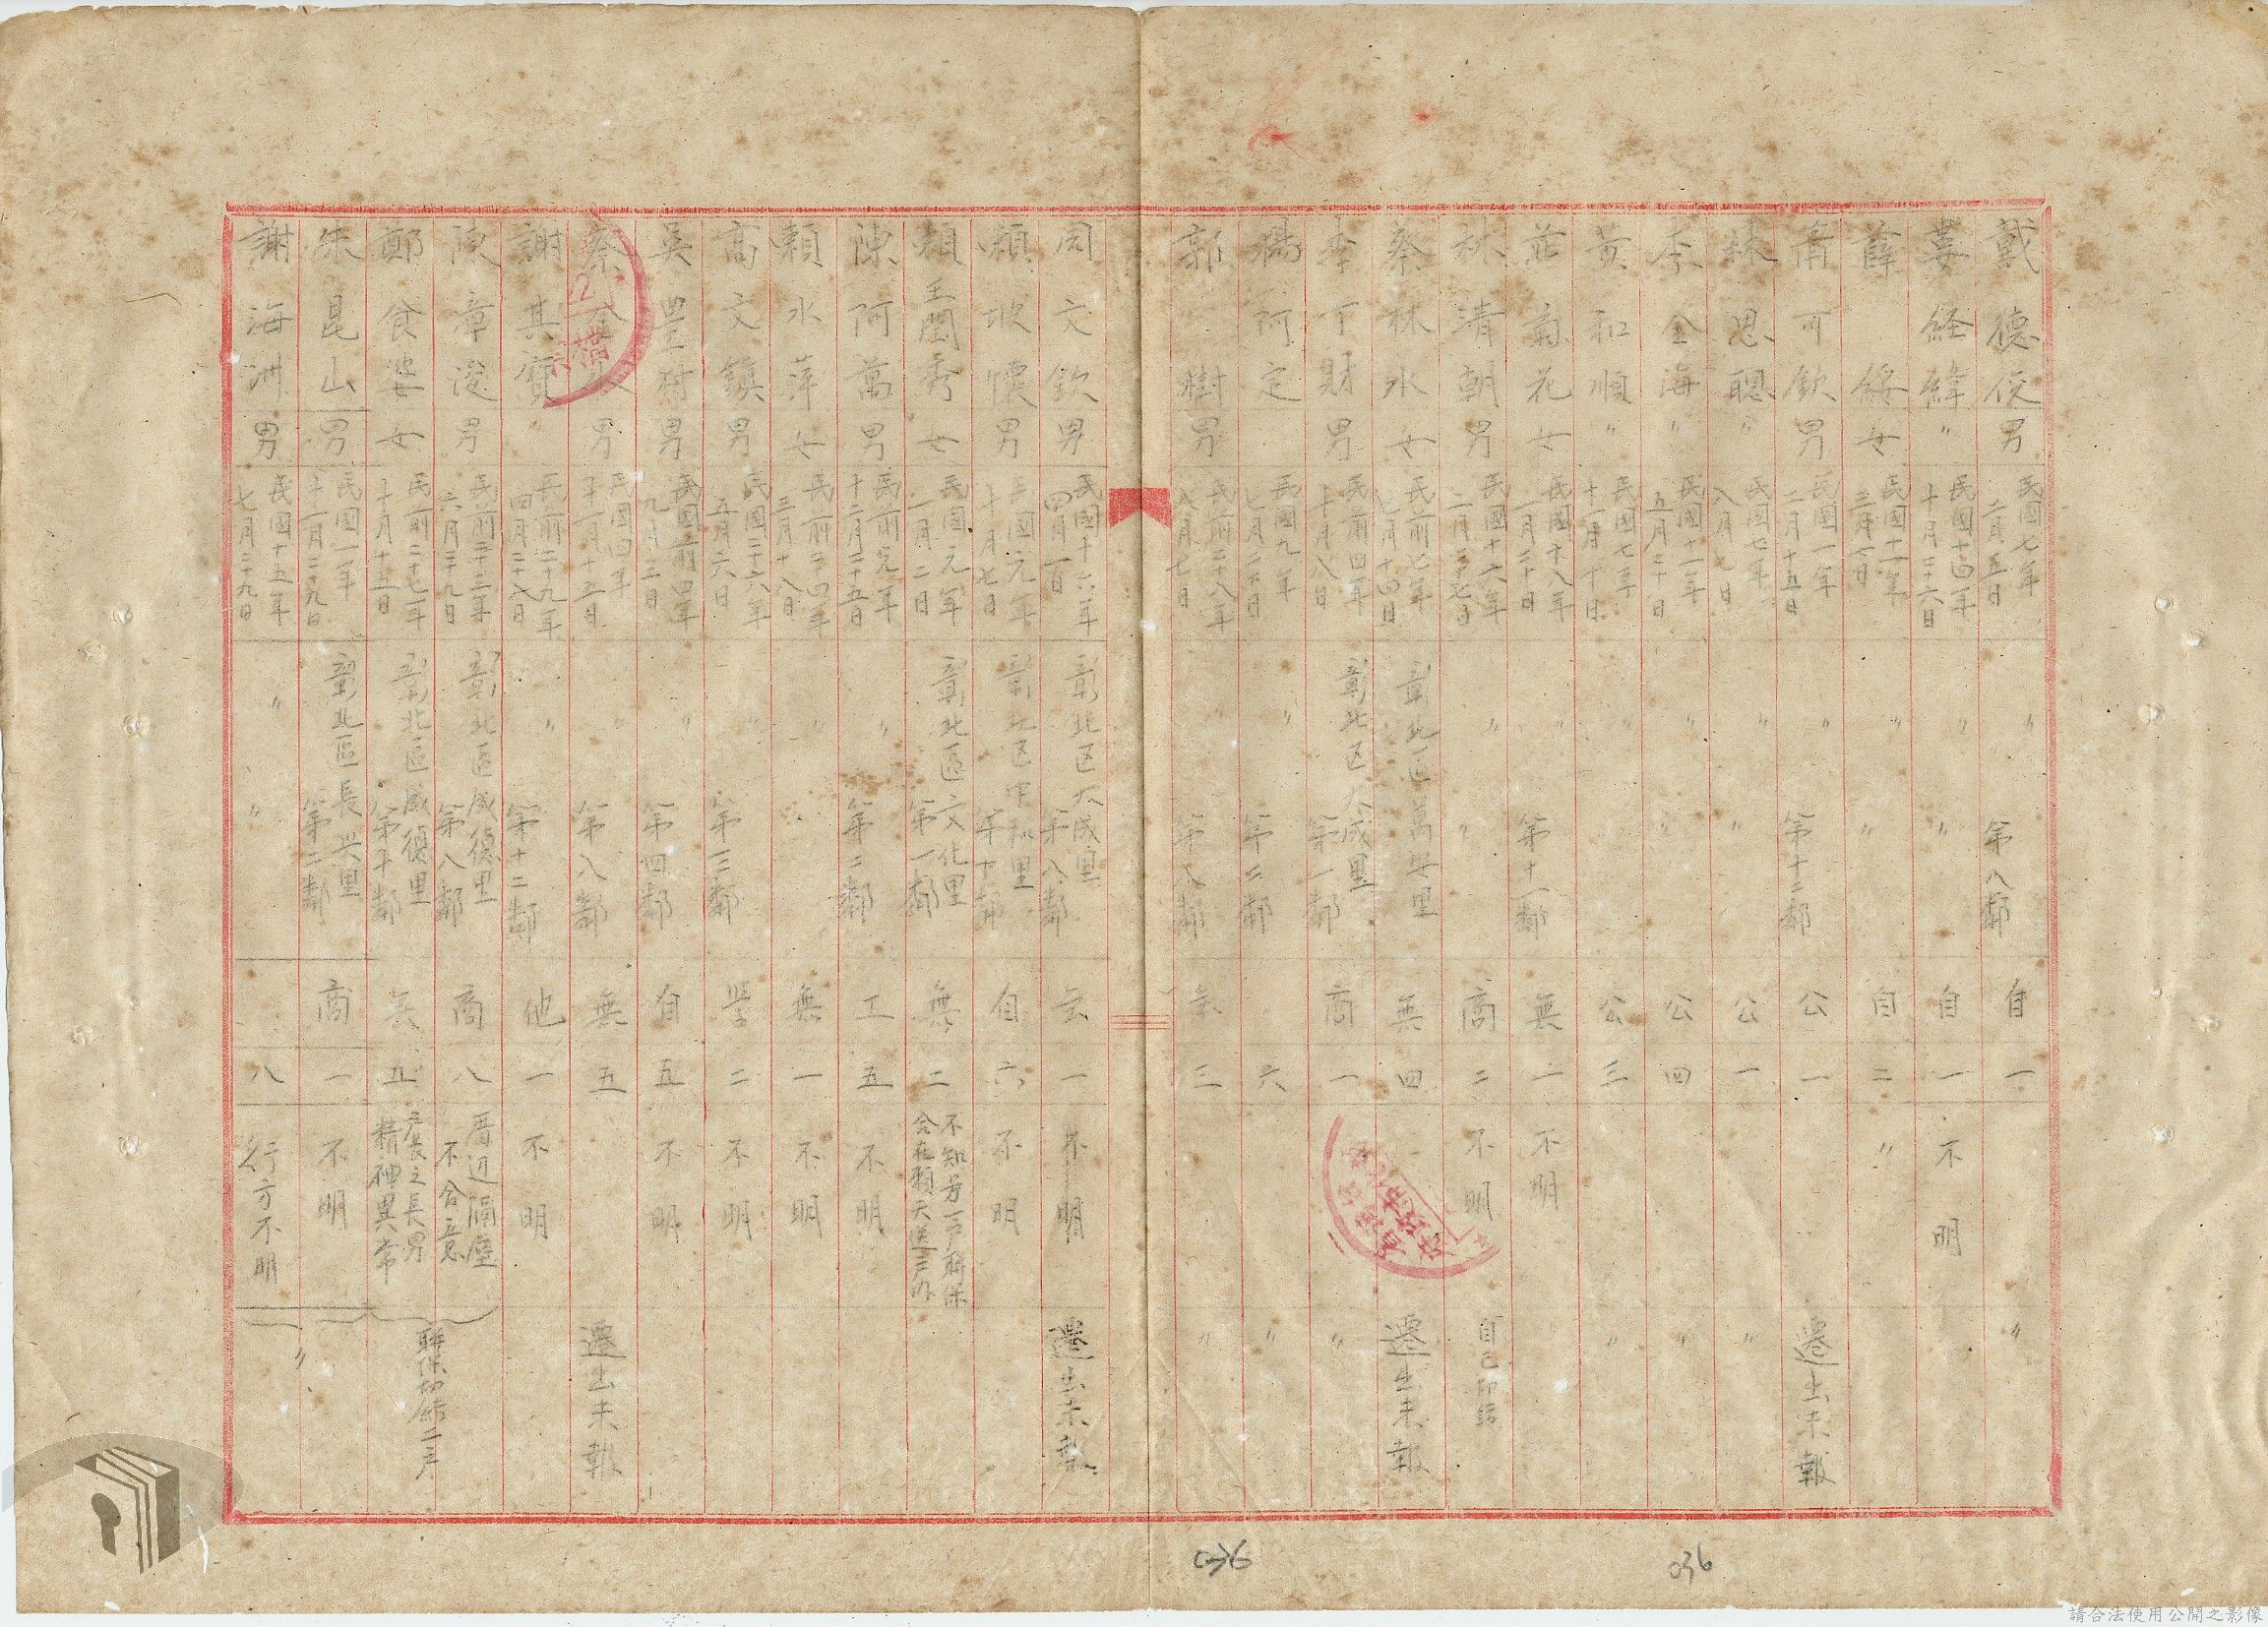 戴德俊 男 民國七年二月五日 〃 第八鄰 自 一 〃
姜経緯 〃 民國十四年十月二十六日 〃 〃 自 一 不明
薛 綏 女 民國十一年三月一日 〃 〃 自 二 〃
蕭可欽 男 民國一年二月十五日 〃 第十二鄰 公 一 遷出未報
林思聰 〃 民國七年八月七日 〃 〃 公 一 〃
李全海 〃 民國十一年五月二十日 〃 〃 公 四 〃
黃和順 〃 民國七年十一月十日 〃 公 三 〃
莊菊花 女 民國十八年一月二十日 〃 第十一鄰 無 一 不明
林清朝 男 民國十六年二月二十七日 〃 〃 商 二 不明 自己
蔡林水 女 民前七年七月十四日 彰北區萬安里 無 四 遷出未報
李丁財 男 民前四年十月八日 彰北区大成里 第一鄰 商 一 〃
楊阿定 民國九年七月二十日 〃 第二鄰 六 〃
郭 樹 男 民前二十八年八月七日 〃 第八鄰 三 〃
周文欽 男 民國十六年四月一日 彰北区大成里 第八鄰 一 不明 遷出未報
賴坡懷 男 民國元年十月七日 彰北区中 里 第十鄰 自 六 不明
賴王閨秀 女 民國元年一月二日 彰北區文化里 第一鄰 無 二 不知另一戶聯保 合在賴天送戶內
陳阿萬 男 民前元年十二月二十五日 〃 第二鄰 工 五 不明
賴水萍 女 民前二四年三月十八日 〃 無 一 不明
高文鎮 男 民國二十六年五月六日 〃 第三鄰 学 二 不明
吳豐樹 男 民國前四年九月三日 〃 第四鄰 自 五 不明
蔡 男 民國四年十一月十五日 〃 第八鄰 無 五 遷出未報
謝其寶 〃 民前二十九年四月二十八日 〃 第十二鄰 他 一 不明
陳章浚 男 民前二十三年六月二十九日 彰北區成復里 第八鄰 商 八 厝边隔壁不合意
鄭食婆 女 民前二十七年十月十五日 彰北區成復里 第十鄰 五 戶長之長男精神異常
聯保切結二戶
朱昆山 男 民國一年十一月二九日 彰北區長興里 第二鄰 商 一 不明
謝海洲 男 民國十五年七月二十九日 〃 〃 八 行方不明
〃
036
036
請合法使用公開之影像